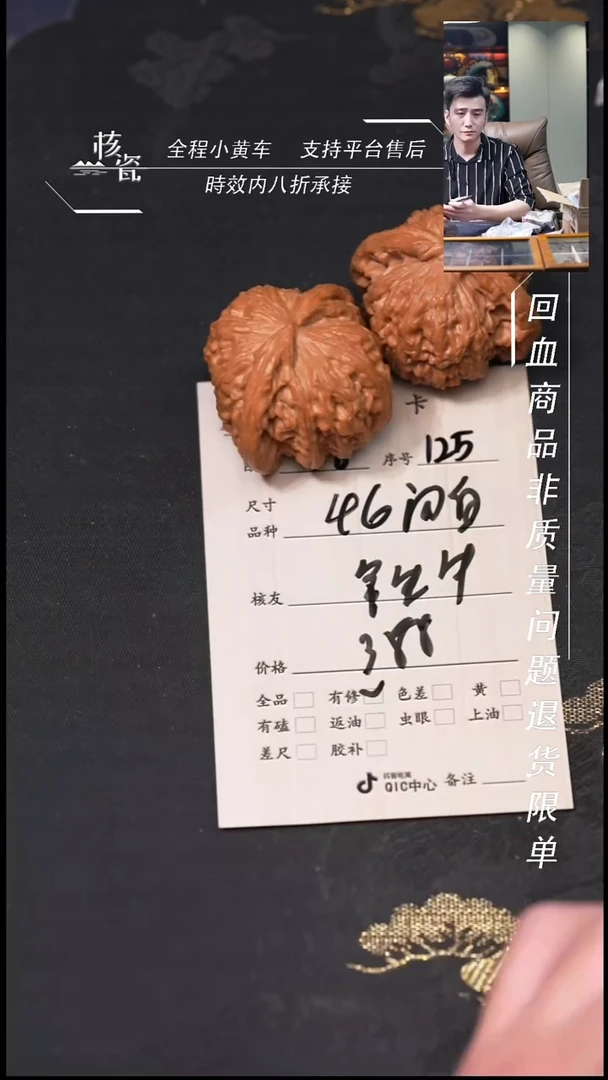 核瓷
全程小黄车 支持平台售后
時效内八折承接
回血商品非质量问题退货限单
卡
序号 125
尺寸
品种 46闷白
核友
价格 388
全品 有修 色差 黄
有磕 返油 虫眼 上油
差尺 胶补
抖音电商
QIC中心 备注